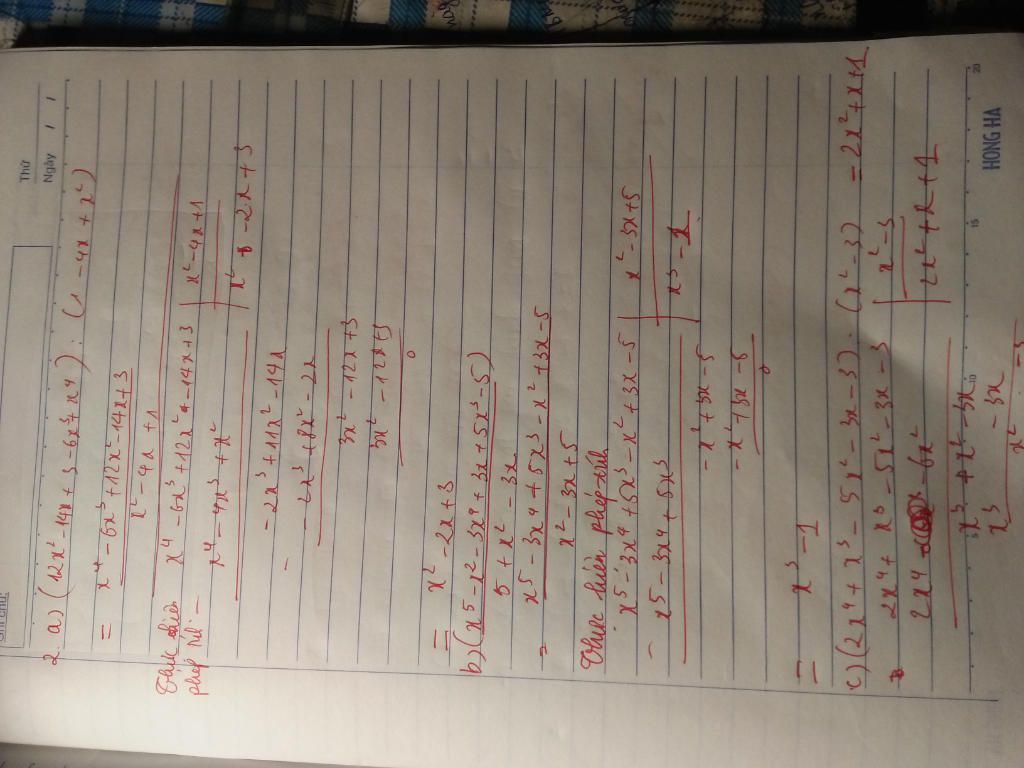 Thứ
Ngày / /
2. a) (12x² - 14x + 3 - 6x³ + x⁴) : (1 - 4x + x²)
= x⁴ - 6x³ + 12x² - 14x + 3
x² - 4x + 1
Thực hiện
x⁴ - 6x³ + 12x² - 14x + 3 | x² - 4x + 1
phép
x⁴ - 4x³ + x² | x² - 2x + 3
- 2x³ + 11x² - 14x
- - 2x³ + 8x² - 2x
3x² - 12x + 3
3x² - 12x + 3
0
= x² - 2x + 3
b) (x⁵ - x² - 3x⁴ + 3x + 5x³ - 5)
5 + x² - 3x
= x⁵ - 3x⁴ + 5x³ - x² + 3x - 5
x² - 3x + 5
Thực hiện phép
x⁵ - 3x⁴ + 5x³ - x² + 3x - 5 | x² - 3x + 5
- x⁵ - 3x⁴ + 5x³ | x³ - 1
- x² + 3x - 5
- x² + 3x - 5
0
= x³ - 1
c) (2x⁴ + x³ - 5x² - 3x - 3) : (x² - 3) = 2x² + x + 1
2x⁴ + x³ - 5x² - 3x - 3 | x² - 3
2x⁴ - 6x² | 2x² + x + 1
x³ + x² - 3x
x³ - 3x
x² - 3
5 10 15 20
HONG HA